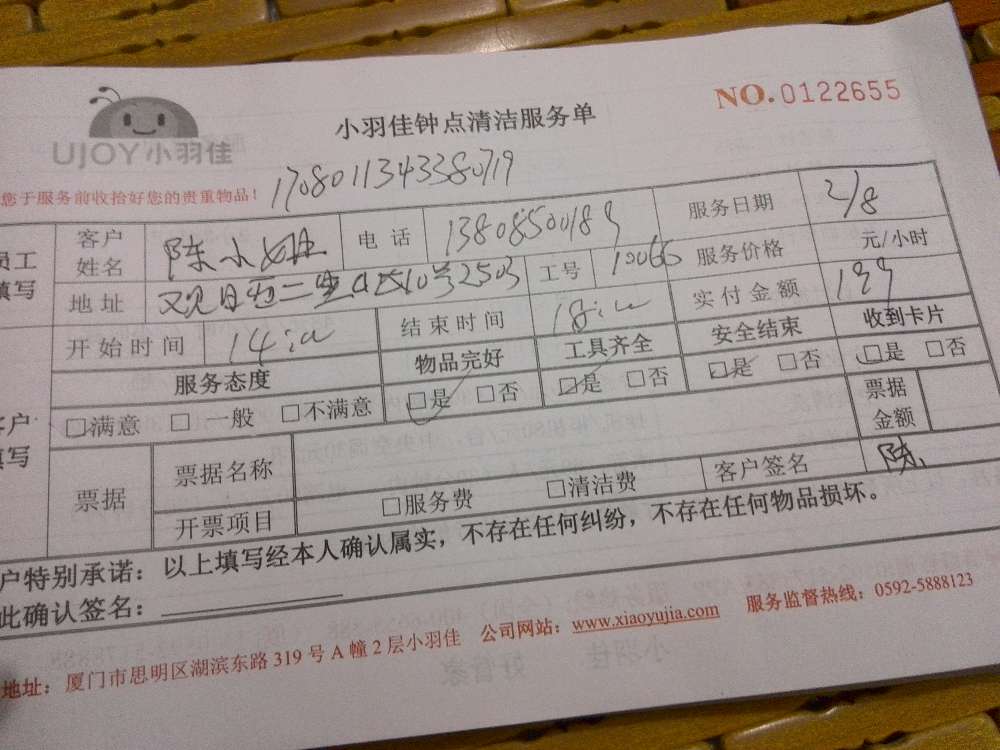 NO.0122655
小羽佳钟点清洁服务单
UJOY小羽佳
您于服务前收拾好您的贵重物品!
1708011343380719
员工填写
客户姓名 陈小姐 电话 13808500189 服务日期 2/8
地址 工号 10066 服务价格 元/小时
开始时间 14: 结束时间 18: 实付金额 199
服务态度 物品完好 工具齐全 安全结束 收到卡片
客户填写
□满意 □一般 □不满意 □是 □否 □是 □否 □是 □否 □是 □否
票据 票据名称 票据金额
开票项目 □服务费 □清洁费 客户签名 陈
户特别承诺:以上填写经本人确认属实,不存在任何纠纷,不存在任何物品损坏。
此确认签名:
地址:厦门市思明区湖滨东路319号A幢2层小羽佳 公司网站:www.xiaoyujia.com 服务监督热线:0592-5888123